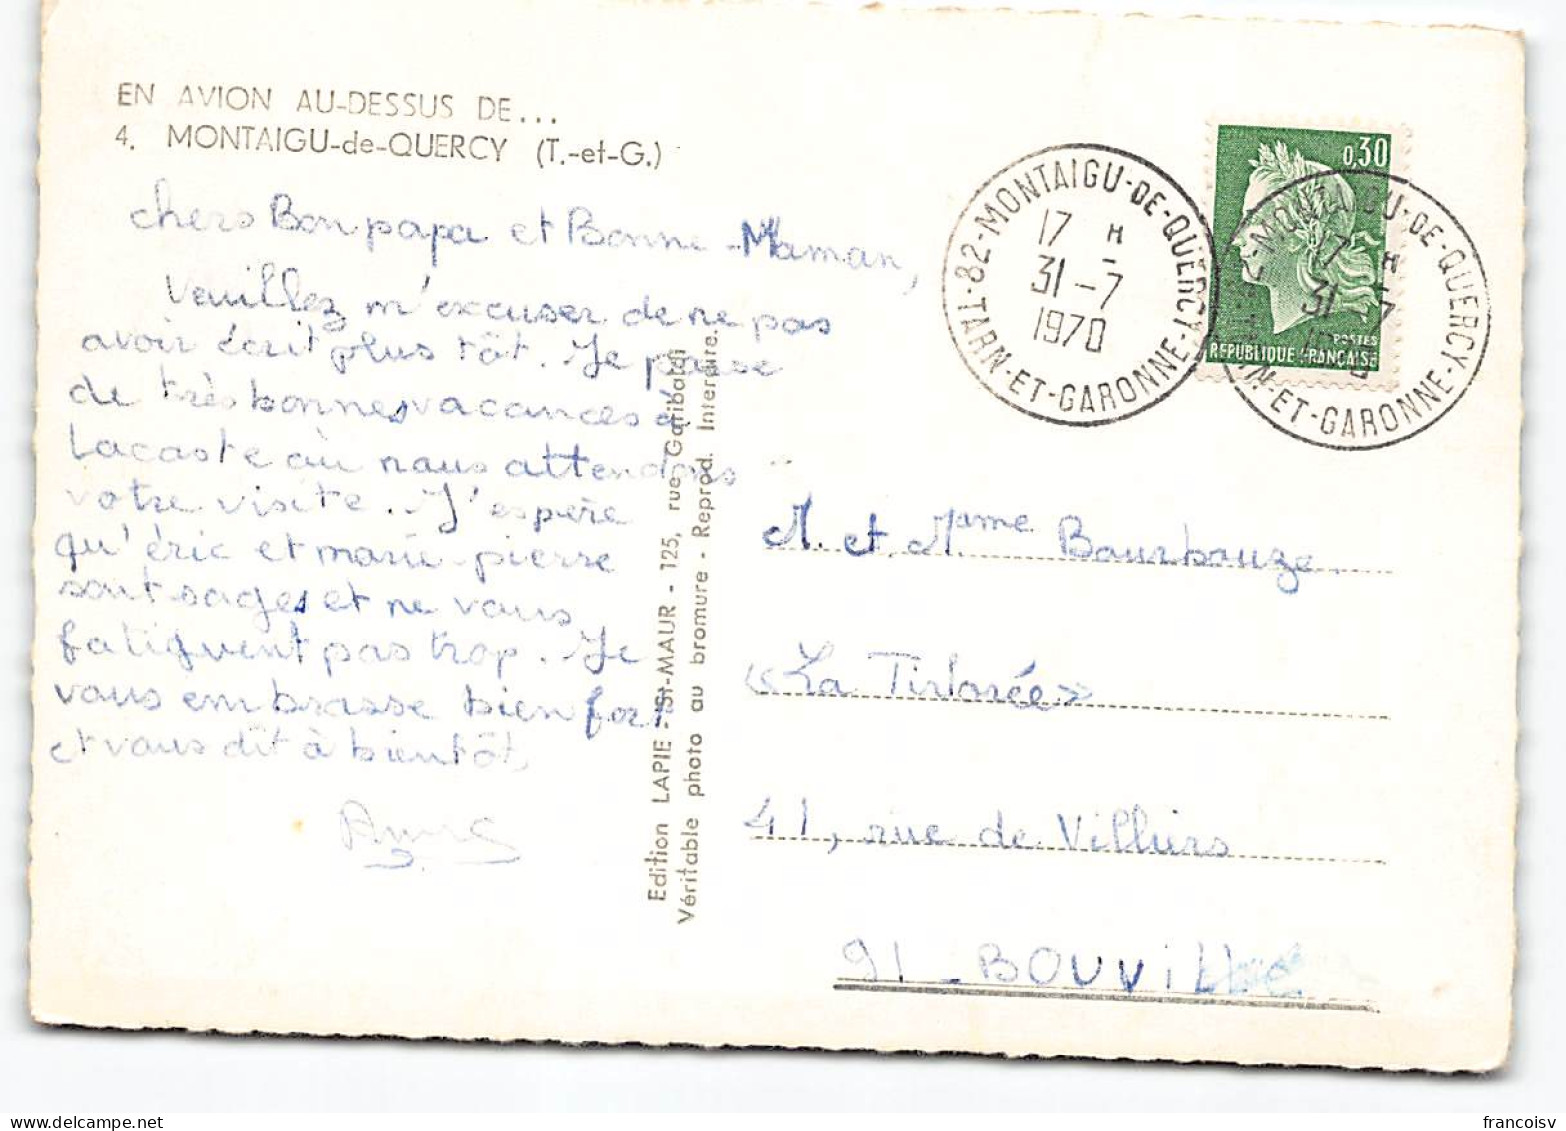 EN AVION AU-DESSUS DE...
4. MONTAIGU-de-QUERCY (T.-et-G.)
chers Bon papa et Bonne-Maman,
Veuillez m'excuser de ne pas
avoir écrit plus tôt. Je passe
de très bonnes vacances à
Lacaste où nous attendons
votre visite. J'espère
qu'éric et marie-pierre
sont sages et ne vous
fatiguent pas trop. Je
vous embrasse bien fort
et vous dit à bientôt,
Anne
Edition LAPIE - St-MAUR - 125, rue Garibaldi
Véritable photo au bromure - Reprod. Interdite.
82-MONTAIGU-DE-QUERCY
17 H
31-7
1970
TARN-ET-GARONNE
0,30
POSTES
REPUBLIQUE FRANÇAISE
82-MONTAIGU-DE-QUERCY
17 H
31-7
1970
TARN-ET-GARONNE
M. et Mame Bourbouze.
«La Tirlorée»
41, rue de Villiers
91_BOUVILLE
francoisv